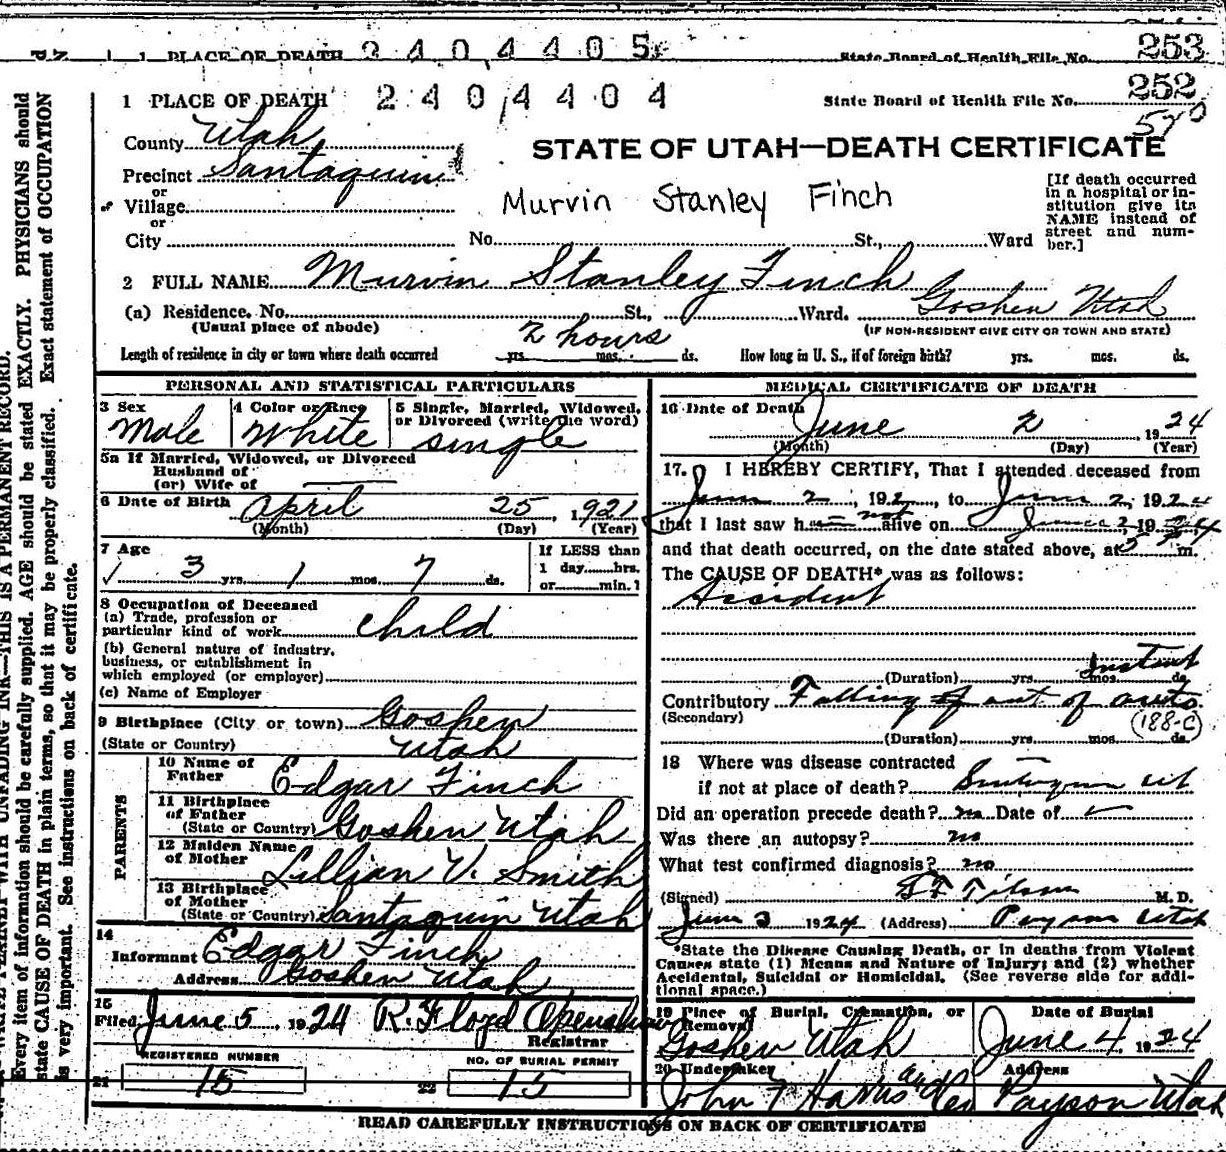 1 PLACE OF DEATH 2404405 State Board of Health File No. 253
1 PLACE OF DEATH 2404404 State Board of Health File No. 252
570
County Utah
STATE OF UTAH—DEATH CERTIFICATE
Precinct Santaquin
or
Village
or
City No. St., Ward
Murvin Stanley Finch
[If death occurred
in a hospital or in-
stitution give its
NAME instead of
street and num-
ber.]
2 FULL NAME Murvin Stanley Finch
(a) Residence. No. St., Ward. Goshen Utah
(Usual place of abode) (IF NON-RESIDENT GIVE CITY OR TOWN AND STATE)
2 hours
Length of residence in city or town where death occurred yrs. mos. ds. How long in U. S., if of foreign birth? yrs. mos. ds.
PERSONAL AND STATISTICAL PARTICULARS
3 Sex 4 Color or Race 5 Single, Married, Widowed,
or Divorced (write the word)
Male White single
5a If Married, Widowed, or Divorced
Husband of
(or) Wife of
6 Date of Birth April 25, 1921
(Month) (Day) (Year)
7 Age If LESS than
1 day......hrs.
or......min.?
3 yrs. 1 mos. 7 ds.
8 Occupation of Deceased
(a) Trade, profession or
particular kind of work child
(b) General nature of industry,
business, or establishment in
which employed (or employer)
(c) Name of Employer
9 Birthplace (City or town) Goshen
(State or Country) Utah
PARENTS
10 Name of
Father Edgar Finch
11 Birthplace
of Father
(State or Country) Goshen Utah
12 Maiden Name
of Mother Lillian V. Smith
13 Birthplace
of Mother
(State or Country) Santaquin Utah
14
Informant Edgar Finch
Address Goshen Utah
15
Filed June 5, 1924 R. Floyd Openshaw
Registrar
REGISTERED NUMBER NO. OF BURIAL PERMIT
21 15 22 15
MEDICAL CERTIFICATE OF DEATH
16 Date of Death
June 2, 1924
(Month) (Day) (Year)
17. I HEREBY CERTIFY, That I attended deceased from
June 2, 192, to June 2, 1924
that I last saw h not alive on June 2, 1924
and that death occurred, on the date stated above, at 5 P m.
The CAUSE OF DEATH* was as follows:
Accident
Instant
(Duration) yrs. mos. ds.
Contributory Falling out of auto
(Secondary) (188-C)
(Duration) yrs. mos. ds.
18 Where was disease contracted
if not at place of death? Santaquin Ut
Did an operation precede death? no Date of
Was there an autopsy? no
What test confirmed diagnosis? no
(Signed) M. D.
June 3 1924 (Address) Payson Utah
*State the Disease Causing Death, or in deaths from Violent
Causes state (1) Means and Nature of Injury; and (2) whether
Accidental, Suicidal or Homicidal. (See reverse side for addi-
tional space.)
19 Place of Burial, Cremation, or
Removal Date of Burial
Goshen Utah June 4, 1924
20 Undertaker Address
John T Harris and Co Payson Utah
READ CAREFULLY INSTRUCTIONS ON BACK OF CERTIFICATE
WRITE PLAINLY WITH UNFADING INK—THIS IS A PERMANENT RECORD.
Every item of information should be carefully supplied. AGE should be stated EXACTLY. PHYSICIANS should
state CAUSE OF DEATH in plain terms, so that it may be properly classified. Exact statement of OCCUPATION
is very important. See instructions on back of certificate.